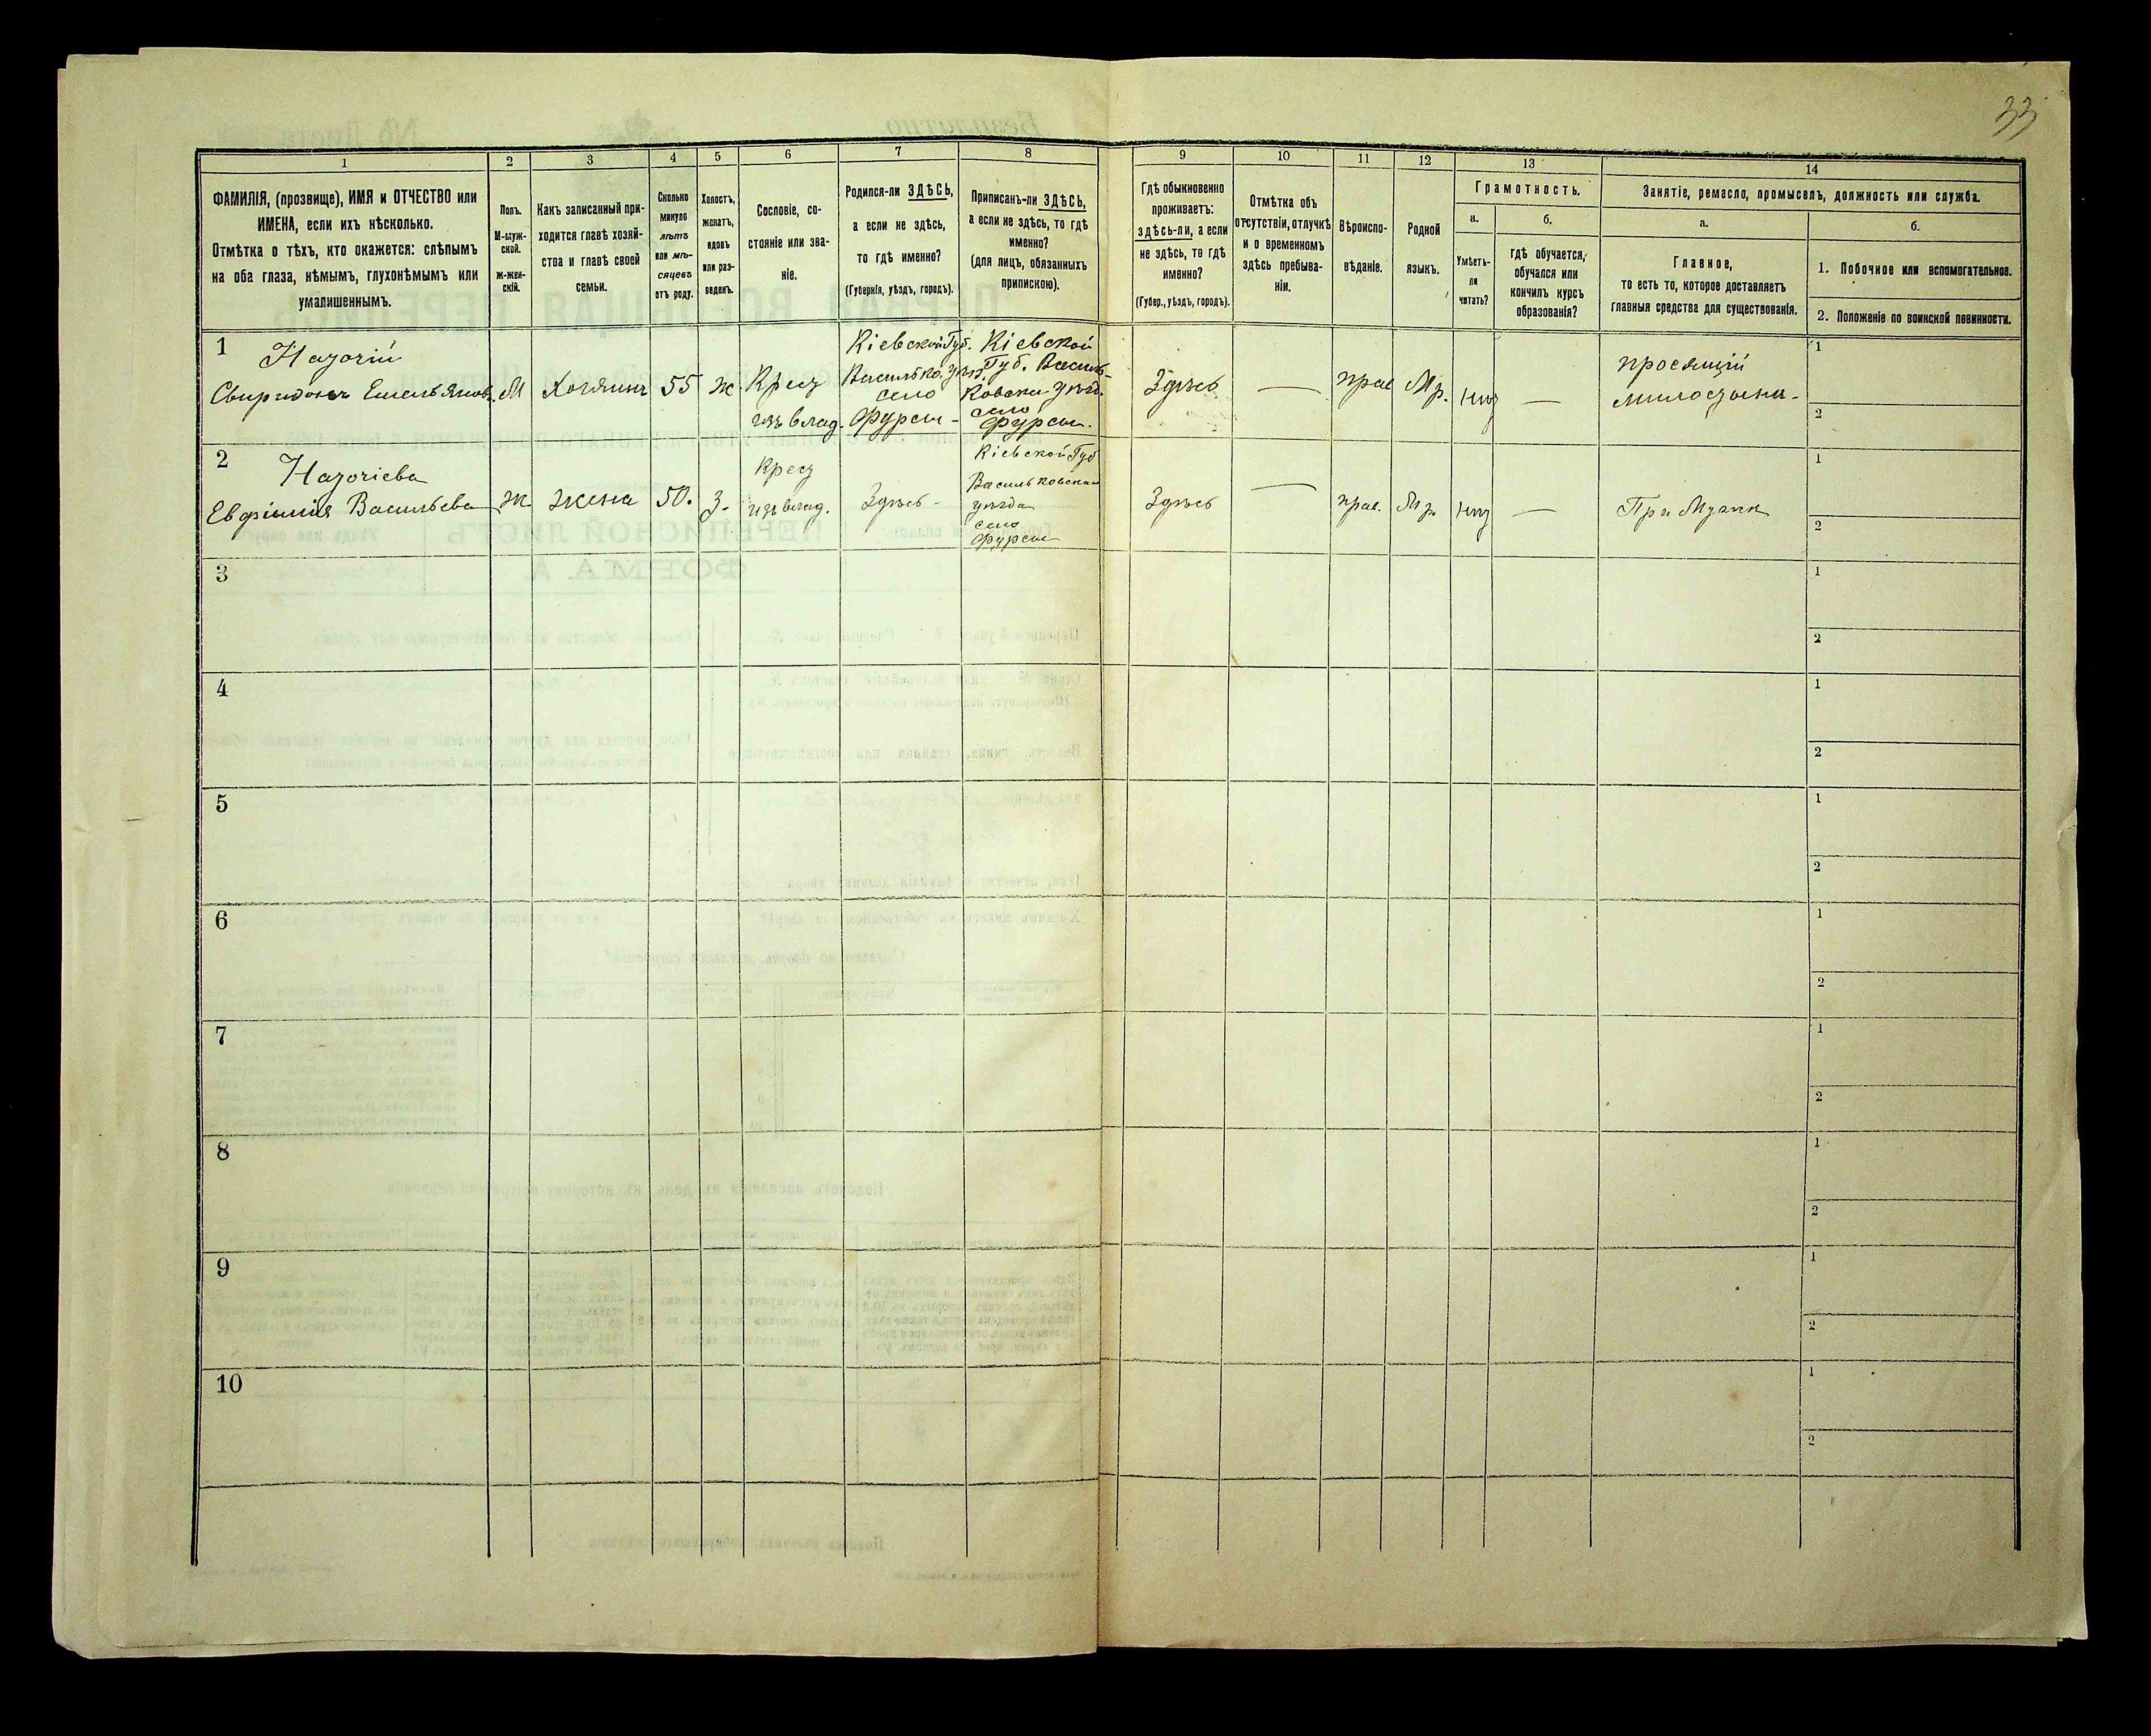 33
1
2
3
4
5
6
7
8
9
10
11
12
13
14
ФАМИЛІЯ, (прозвище), ИМЯ и ОТЧЕСТВО или
ИМЕНА, если ихъ нѣсколько.
Отмѣтка о тѣхъ, кто окажется: слѣпымъ
на оба глаза, нѣмымъ, глухонѣмымъ или
умалишеннымъ.
Полъ.
М-муж-
ской.
ж-жен-
скій.
Какъ записанный при-
ходится главѣ хозяй-
ства и главѣ своей
семьи.
Сколько
минуло
лѣтъ
или мѣ-
сяцевъ
отъ роду.
Холостъ,
женатъ,
вдовъ
или раз-
веденъ.
Сословіе, со-
стояніе или зва-
ніе.
Родился-ли ЗДѢСЬ,
а если не здѣсь,
то гдѣ именно?
(Губернія, уѣздъ, городъ).
Приписанъ-ли ЗДѢСЬ,
а если не здѣсь, то гдѣ
именно?
(для лицъ, обязанныхъ
припискою).
Гдѣ обыкновенно
проживаетъ:
здѣсь-ли, а если
не здѣсь, то гдѣ
именно?
(Губер., уѣздъ, городъ).
Отмѣтка объ
отсутствіи, отлучкѣ
и о временномъ
здѣсь пребыва-
ніи.
Вѣроиспо-
вѣданіе.
Родной
языкъ.
Грамотность.
а.
б.
Умѣетъ-
ли
читать?
гдѣ обучается,
обучался или
кончилъ курсъ
образованія?
Занятіе, ремесло, промыселъ, должность или служба.
а.
б.
Главное,
то есть то, которое доставляетъ
главныя средства для существованія.
1. Побочное или вспомогательное.
2. Положеніе по воинской повинности.
1
Назочій
Свиридонъ Емельянов.
М
Хозяинъ
55
ж
Крест
изъ влад.
Кіевской Губ.
Василько. уѣз.
село
Фурсы -
Кіевской
Губ. Василь-
ковска уѣзд.
село
Фурсы.
Здѣсь
—
прав
Мр.
нѣт
—
просящій
милостыни -
1
2
2
Назочіева
Евфимія Васильева
ж
жена
50.
з.
Крест
изъ влад.
Здѣсь -
Кіевской Губ
Васильковскаи
уѣзда
село
Фурсы
Здѣсь
—
прав.
Мр.
нѣт
—
При Мужѣ
1
2
3
1
2
4
1
2
5
1
2
6
1
2
7
1
2
8
1
2
9
1
2
10
1
2